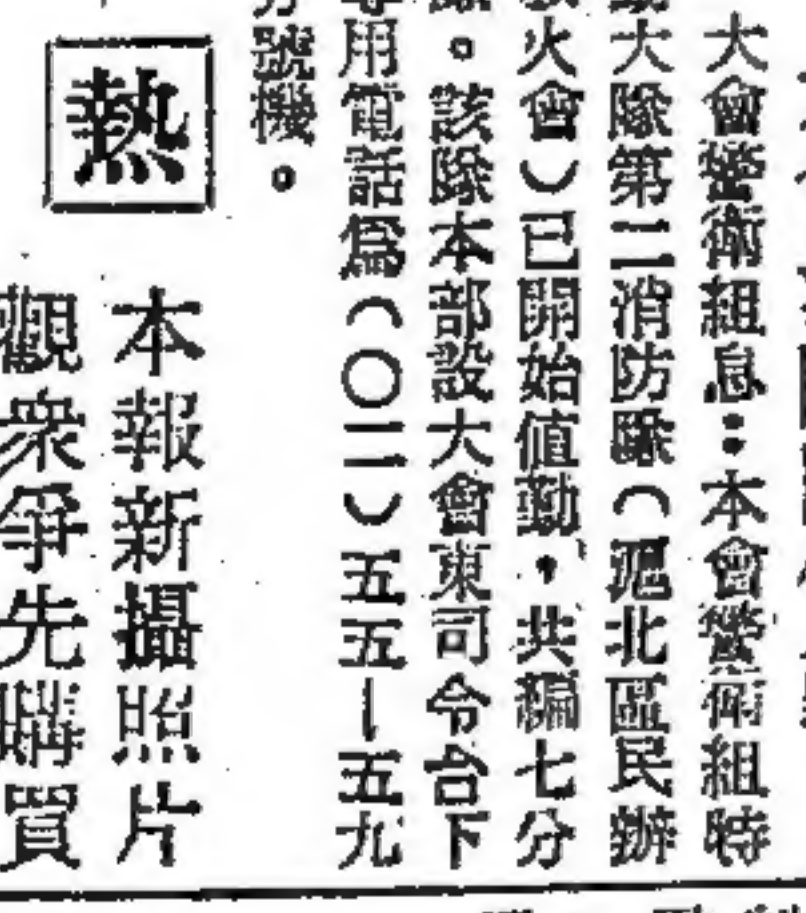 大會警衛組息：本會警衛組特
大隊第二消防隊（滬北區民辦
火會）已開始値勤，共編七分
。該隊本部設大會東司令台下
用電話爲（〇二）五五—五九
號機。
熱
本報新攝照片
觀衆爭先購買